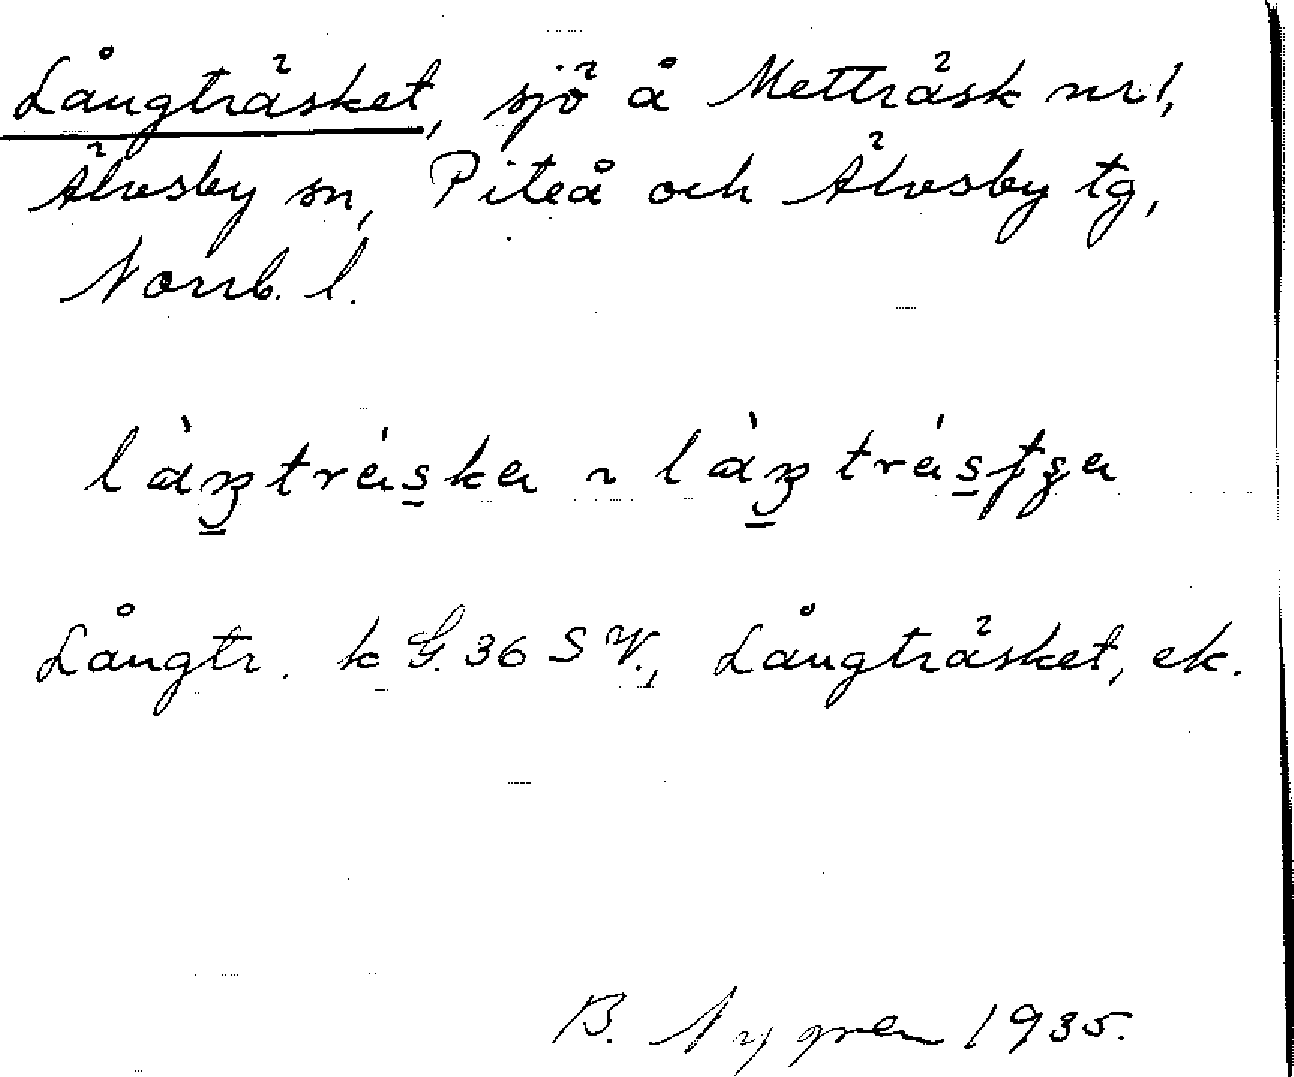 Långträsket, sjö å Metträsk nr 1,
Älvsby sn, Piteå och Älvsby tg,
Norrb. l.
Långtr. k G. 36 S V., Långträsket, ek.
B. Nygren 1935.